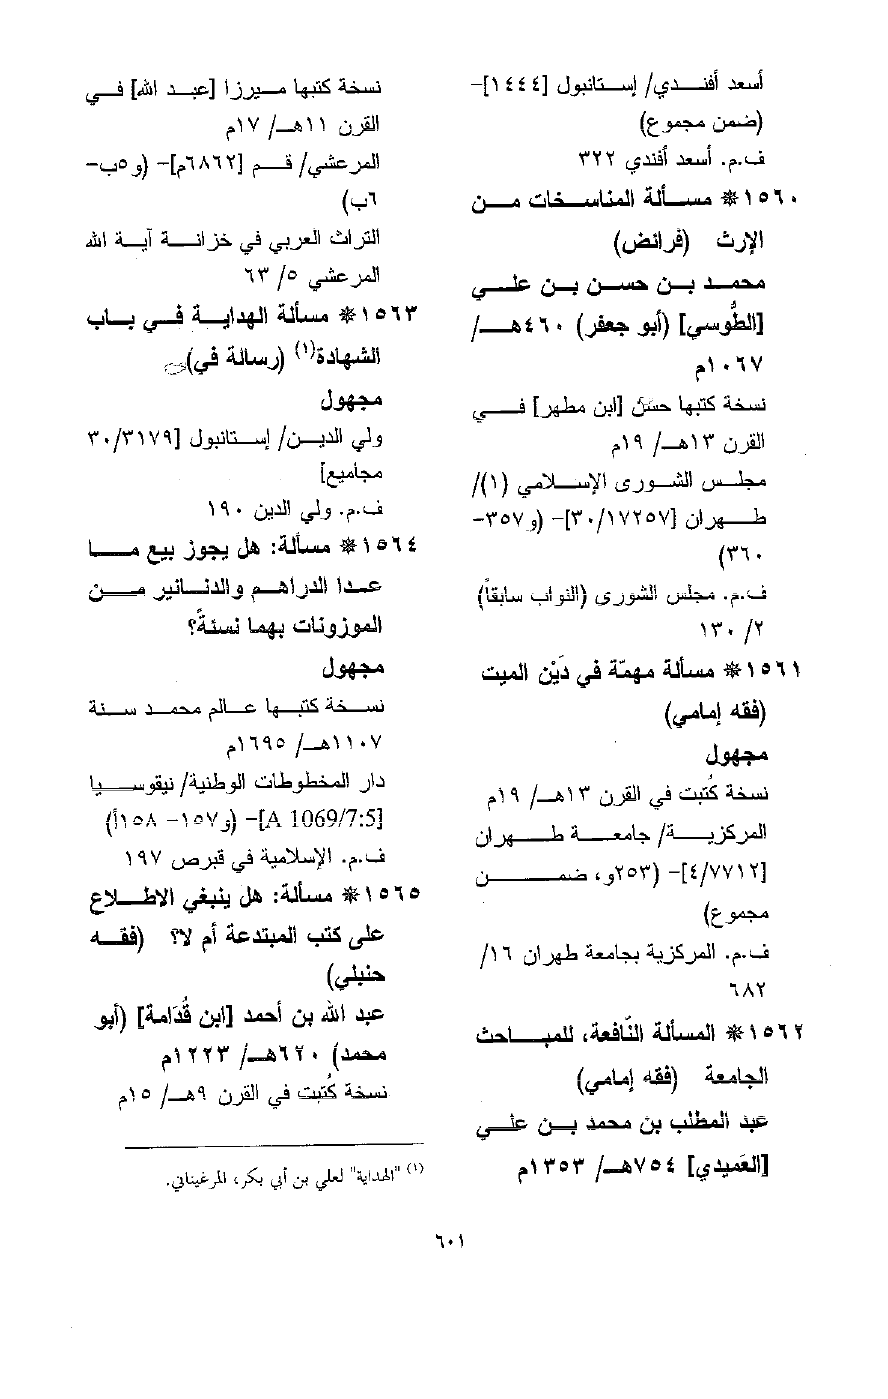 أسعد أفندي/ إستانبول [١٤٤٤]-
(ضمن مجموع)
ف.م. أسعد أفندي ٣٢٢
١٥٦٠* مسألة المناسخات من
الإرث (فرائض)
محمد بن حسن بن علي
[الطُّوسي] (أبو جعفر) ٤٦٠هـ/
١٠٦٧م
نسخة كتبها حسَن [ابن مطهر] في
القرن ١٣هـ/ ١٩م
مجلس الشورى الإسلامي (١)/
طهران [٣٠/١٧٢٥٧]- (و٣٥٧-
٣٦٠)
ف.م. مجلس الشورى (النواب سابقاً)
٢/ ١٣٠
١٥٦١* مسألة مهمّة في دَيْن الميت
(فقه إمامي)
مجهول
نسخة كُتبت في القرن ١٣هـ/ ١٩م
المركزية/ جامعة طهران
[٤/٧٧١٢]- (٢٥٣و، ضمن
مجموع)
ف.م. المركزية بجامعة طهران ١٦/
٦٨٢
١٥٦٢* المسألة النّافعة، للمباحث
الجامعة (فقه إمامي)
عبد المطلب بن محمد بن علي
[العَميدي] ٧٥٤هـ/ ١٣٥٣م
نسخة كتبها ميرزا [عبد الله] في
القرن ١١هـ/ ١٧م
المرعشي/ قم [٦٨٦٢م]- (و٥ب-
٦ب)
التراث العربي في خزانة آية الله
المرعشي ٥/ ٦٣
١٥٦٣* مسألة الهداية في باب
الشهادة(١) (رسالة في)
مجهول
ولي الدين/ إستانبول [٣٠/٣١٧٩
مجاميع]
ف.م. ولي الدين ١٩٠
١٥٦٤* مسألة: هل يجوز بيع ما
عدا الدراهم والدنانير من
الموزونات بهما نسئةً؟
مجهول
نسخة كتبها عالم محمد سنة
١١٠٧هـ/ ١٦٩٥م
دار المخطوطات الوطنية/ نيقوسيا
[A 1069/7:5]- (و١٥٧- ١٥٨أ)
ف.م. الإسلامية في قبرص ١٩٧
١٥٦٥* مسألة: هل ينبغي الاطلاع
على كتب المبتدعة أم لا؟ (فقه
حنبلي)
عبد الله بن أحمد [ابن قُدَامة] (أبو
محمد) ٦٢٠هـ/ ١٢٢٣م
نسخة كُتبت في القرن ٩هـ/ ١٥م
(١) "الهداية" لعلي بن أبي بكر، المرغيناني.
٦٠١